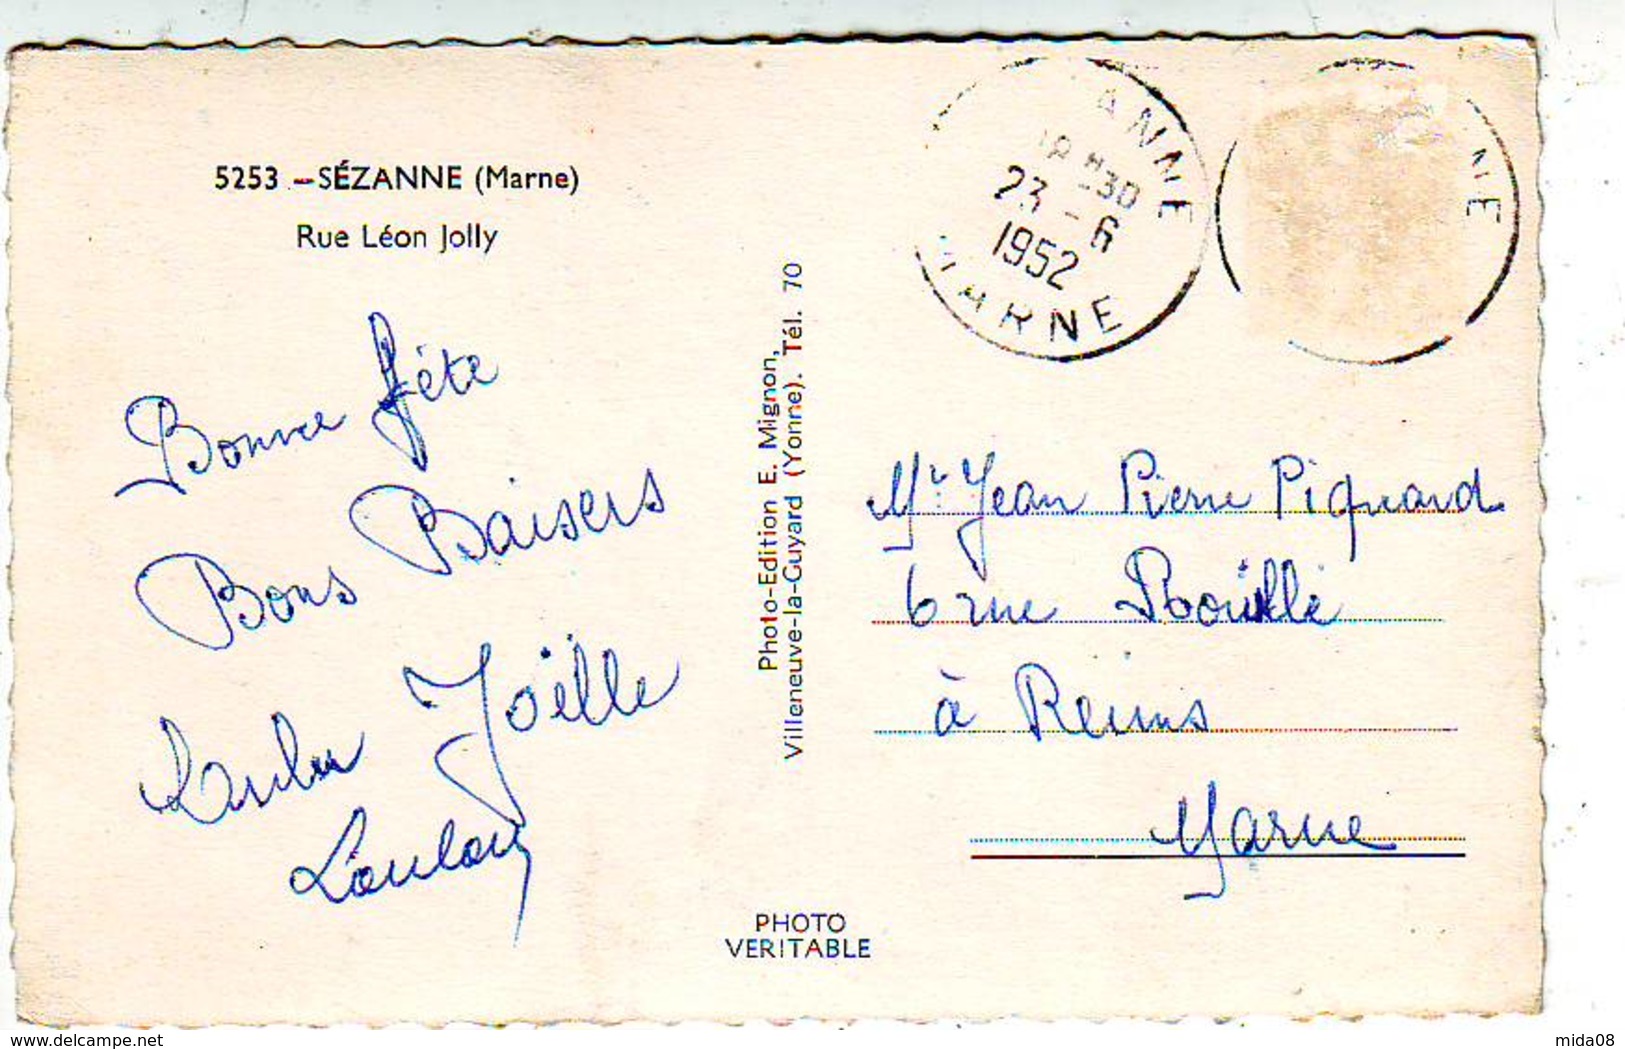 5253 - SÉZANNE (Marne)
Rue Léon Jolly
Bonne fête
Bons Baisers
Joëlle
Loulou
Photo-Edition E. Mignon,
Villeneuve-la-Guyard (Yonne). Tél. 70
PHOTO
VERITABLE
ANNE
23 - 6
1952
MARNE
NE
Mr Jean Pierre Pignard
6 rue
à Reims
Marne
mida08